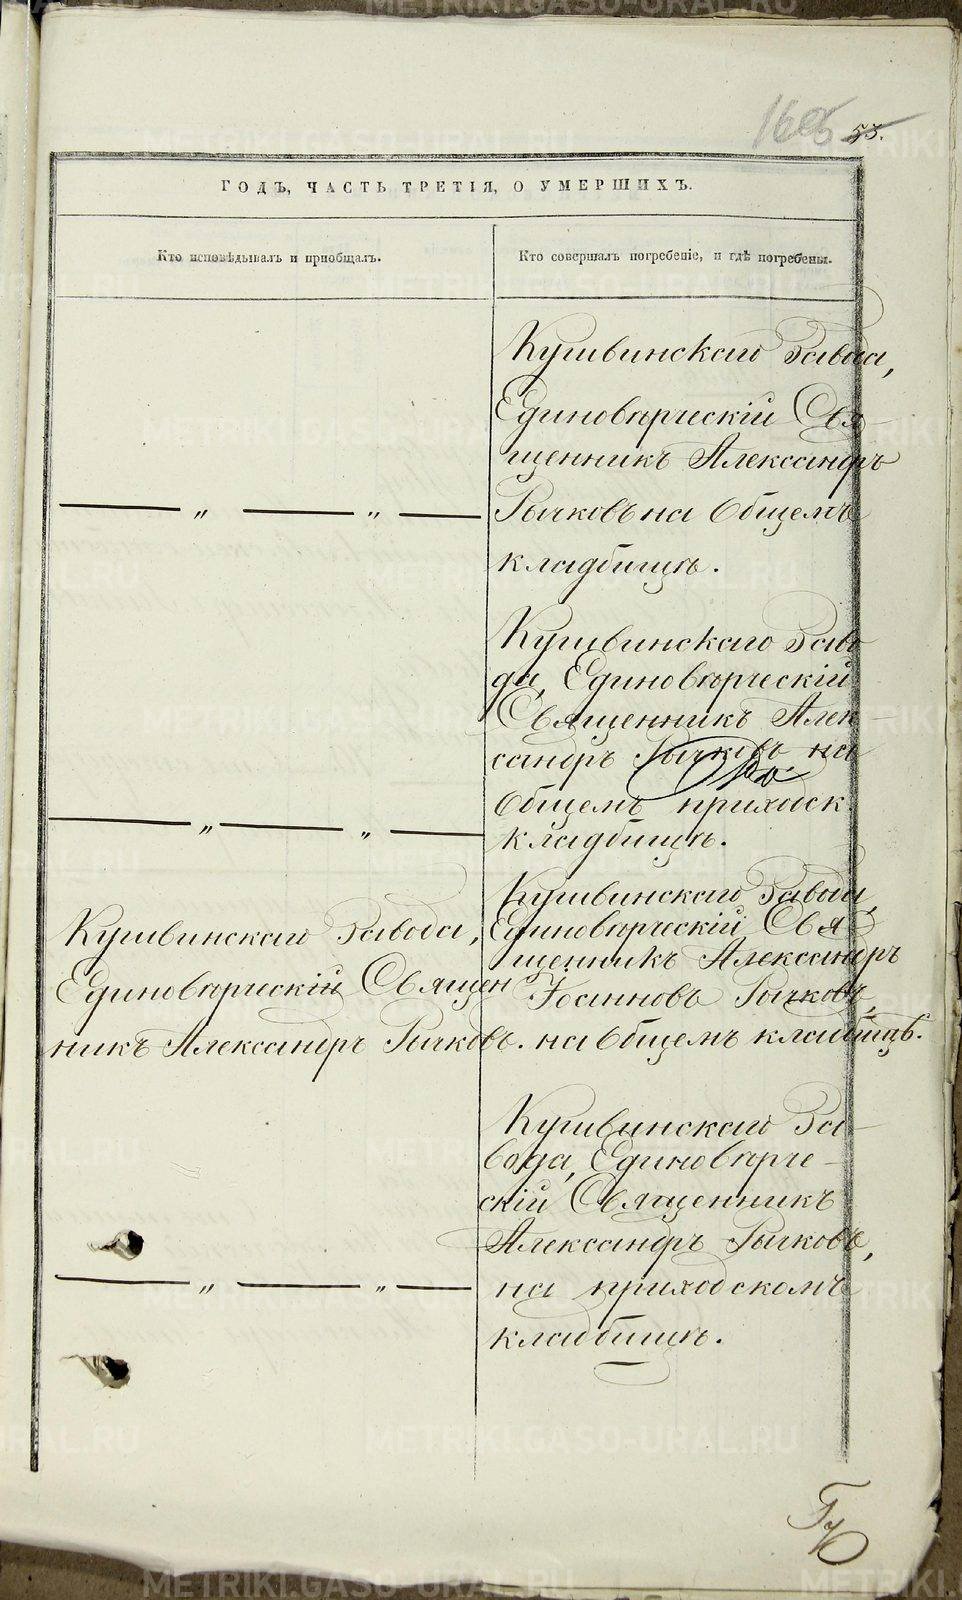 53.
ГОДЪ, ЧАСТЬ ТРЕТІЯ, О УМЕРШИХЪ.
Кто исповѣдывалъ и пріобщалъ.
Кто совершалъ погребеніе, и гдѣ погребены.
Кушвинскаго Завода,
Единовѣрческій Свя-
щенникъ Александръ
— „ — „ — Рычковъ на Общемъ
кладбищѣ.
Кушвинскаго Заво
да, Единовѣрческій
Священникъ Алек-
сандръ Рычковъ на
Общемъ приходск.
— „ — „ — кладбищѣ.
Кушвинскаго Завода,
Единовѣрческій Священ
никъ Александръ Рычковъ.
Кушвинскаго Завода,
Единовѣрческій Свя
щенникъ Александръ
Іоанновъ Рычковъ,
на Общемъ кладбищѣ.
Кушвинскаго За-
вода, Единовѣрче-
скій Священникъ
Александръ Рычковъ,
— „ — „ — на приходскомъ
кладбищѣ.
METRIKI.GASO-URAL.RU